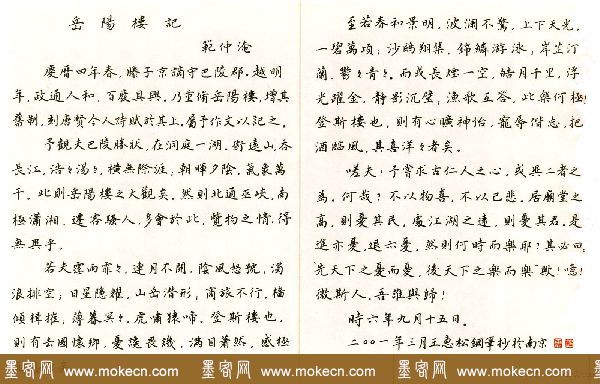 岳陽樓記
範仲淹
慶曆四年春，滕子京謫守巴陵郡。越明
年，政通人和，百廢具興。乃重修岳陽樓，增其
舊制，刻唐賢今人詩賦於其上，屬予作文以記之。
予觀夫巴陵勝狀，在洞庭一湖。銜遠山，吞
長江，浩々湯々，橫無際涯，朝暉夕陰，氣象萬
千。此則岳陽樓之大觀矣。然則北通巫峽，南
極瀟湘，遷客騷人，多會於此，覽物之情，得
無異乎。
若夫霪雨霏々，連月不開，陰風怒號，濁
浪排空；日星隱耀，山岳潛形；商旅不行，檣
傾楫摧，薄暮冥々，虎嘯猿啼。登斯樓也，
則有去國懷鄉，憂讒畏譏，滿目蕭然，感極
至若春和景明，波瀾不驚，上下天光，
一碧萬頃；沙鷗翔集，錦鱗游泳，岸芷汀
蘭，鬱々青々。而或長煙一空，皓月千里，浮
光躍金，靜影沉璧，漁歌互答，此樂何極
登斯樓也，則有心曠神怡，寵辱偕忘，把
酒臨風，其喜洋々者矣。
嗟夫！予嘗求古仁人之心，或異二者之
為，何哉？不以物喜，不以己悲，居廟堂之
高，則憂其民，處江湖之遠，則憂其君，是
進亦憂，退亦憂，然則何時而樂耶？其必曰
先天下之憂而憂，後天下之樂而樂歟！噫！
微斯人，吾誰與歸！
時六年九月十五日。
二〇〇一年三月王惠松鋼筆抄於南京
墨客网 www.mokecn.com 墨客网 www.mokecn.com 墨客网 www.mokecn.com